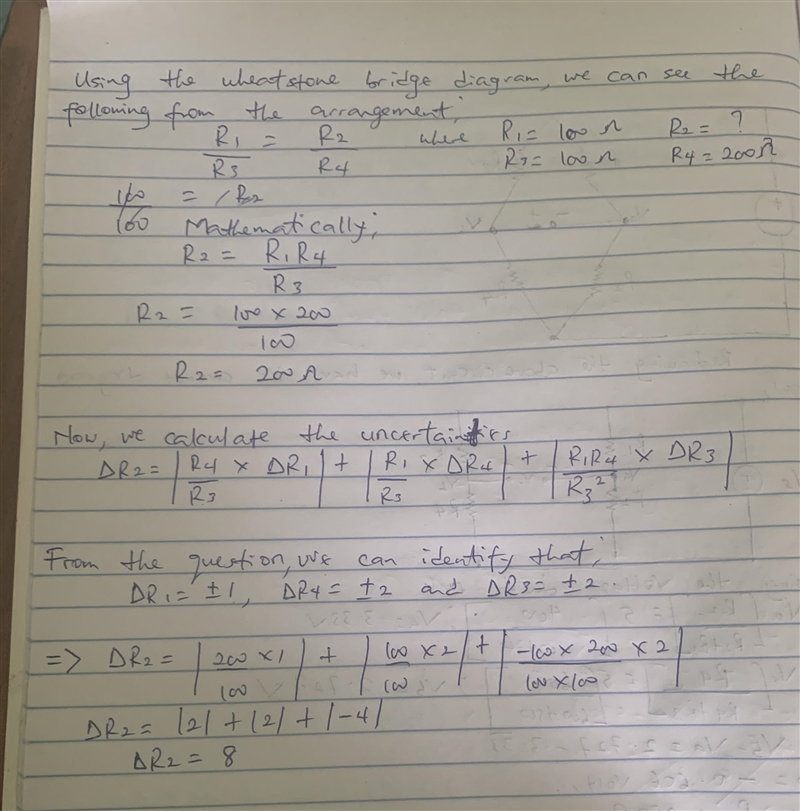 Using the wheatstone bridge diagram, we can see the
following from the arrangement;
R1/R3 = R2/R4 where R1 = 100 Ω R2 = ?
R3 = 100 Ω R4 = 200 Ω
100/100 = R2
Mathematically;
R2 = R1R4/R3
R2 = 100 × 200/100
R2 = 200 Ω
Now, we calculate the uncertainties
ΔR2 = |R4/R3 × ΔR1| + |R1/R3 × ΔR4| + |R1R4/R3² × ΔR3|
From the question, we can identify that;
ΔR1 = ±1, ΔR4 = ±2 and ΔR3 = ±2.
=> ΔR2 = |200 × 1/100| + |100 × 2/100| + |-100 × 200 × 2/100 × 100|
ΔR2 = |2| + |2| + |-4|
ΔR2 = 8